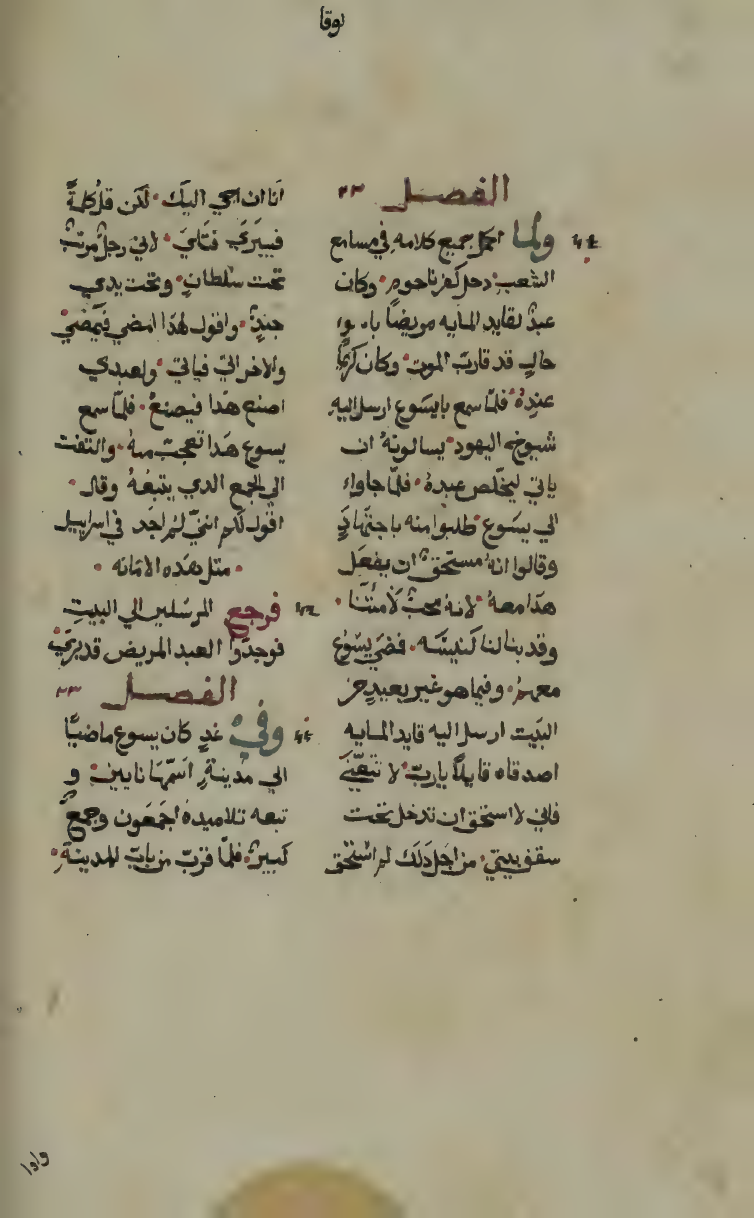 لوقا
الفصل ٢٢
ولما اكمل جميع كلامه في مسامع
الشعب دخل كفرناحوم وكان
عبدٌ لقايد المايه مريضًا باسوء
حالٍ قد قارب الموت وكان كريمًا
عنده فلمّا سمع بايسوع ارسل اليه
شيوخ اليهود يسالونه ان
ياتي ليخلّص عبده فلمّا جاواء
الي يسوع طلبوا منه باجتهادٍ
وقالوا انه مستحق ان يفعل
هذا معه لانه محبٌ لامّتنا
وقد بنا لنا كنيسه فمضي يسوع
معهم وفيما هو غير بعيدٍ من
البيت ارسل اليه قايد المايه
اصدقاه قايلاً يا ربّ لا تتعنّي
فاني لا استحق ان تدخل تحت
سقف بيتي من اجل ذلك لم استحق
انا ان اجي اليك لكن قل كلمةً
فيبرَي فتاي لاني رجلٌ مرتبٌ
تحت سلطانٍ وتحت يدي
جندٌ واقول لهذا امضي فيمضي
والاخر اتي فياتي ولعبدي
اصنع هذا فيصنع فلمّا سمع
يسوع هذا تعجّب منه والتفت
الي الجمع الدي يتبعه وقال
اقول لكم انني لم اجد في اسراييل
مثل هذه الامانه
فرجع المرسلين الي البيت
فوجدوا العبد المريض قد بري
الفصل ٢٣
وفي غدٍ كان يسوع ماضيًا
الي مدينةٍ اسمها نايين و
تبعه تلاميده اجمعون وجمعٌ
كبيرٌ فلمّا قرب من باب المدينة
واذا